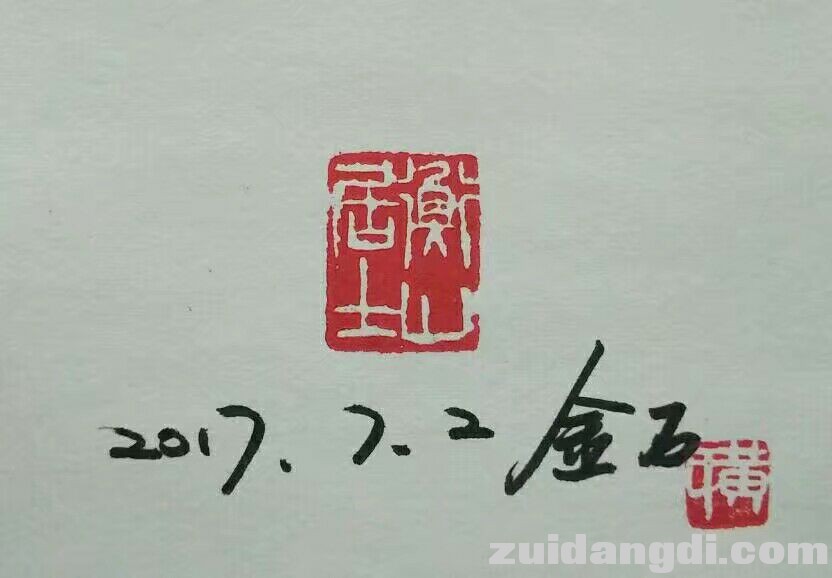 衡山居士
2017.7.2 金石
横
zuidangdi.com